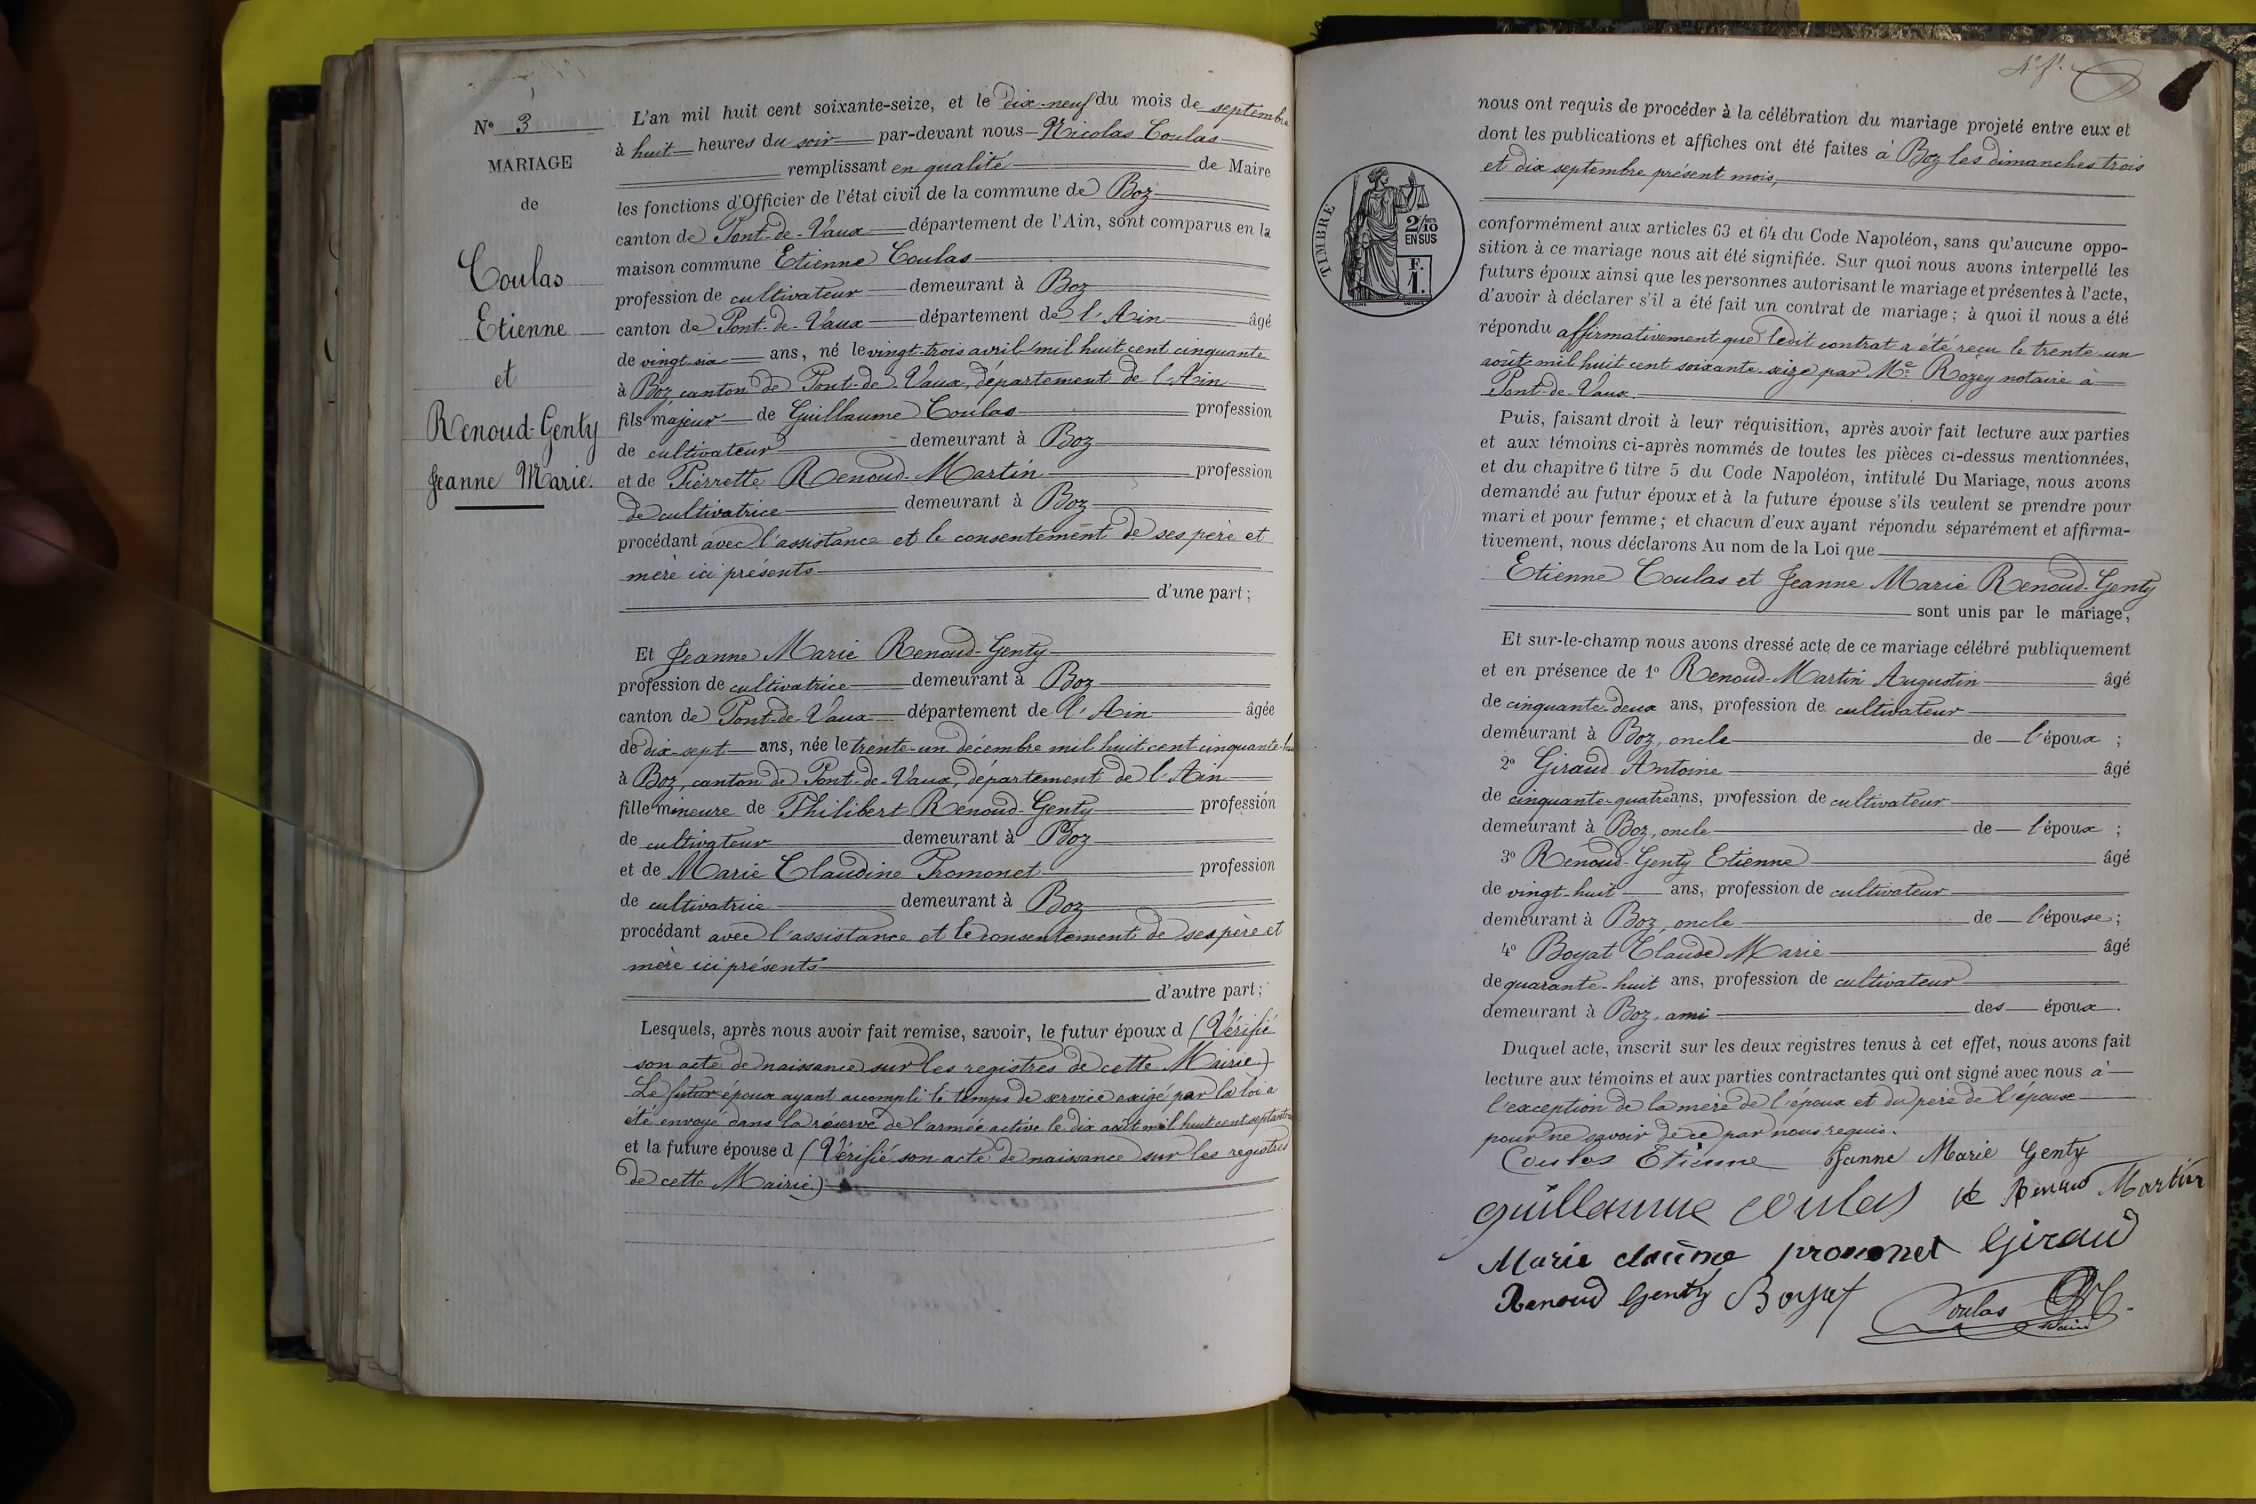 N° 3
MARIAGE
de
Coulas
Etienne
et
Renoud-Genty
Jeanne Marie.
L'an mil huit cent soixante-seize, et le dix-neuf du mois de septembre
à huit heures du soir par-devant nous Nicolas Coulas
remplissant en qualité de Maire
les fonctions d'Officier de l'état civil de la commune de Boz
canton de Pont-de-Vaux département de l'Ain, sont comparus en la
maison commune Etienne Coulas
profession de cultivateur demeurant à Boz
canton de Pont-de-Vaux département de l'Ain âgé
de vingt six ans, né le vingt-trois avril mil huit cent cinquante
à Boz, canton de Pont-de-Vaux, département de l'Ain
fils majeur de Guillaume Coulas profession
de cultivateur demeurant à Boz
et de Pierrette Renoud-Martin profession
de cultivatrice demeurant à Boz
procédant avec l'assistance et le consentement de ses père et
mère ici présents
d'une part;
Et Jeanne Marie Renoud-Genty
profession de cultivatrice demeurant à Boz
canton de Pont-de-Vaux département de l'Ain âgée
de dix-sept ans, née le trente-un décembre mil huit cent cinquante-
à Boz, canton de Pont-de-Vaux, département de l'Ain
fille mineure de Philibert Renoud-Genty profession
de cultivateur demeurant à Boz
et de Marie Claudine Promonet profession
de cultivatrice demeurant à Boz
procédant avec l'assistance et le consentement de ses père et
mère ici présents
d'autre part;
Lesquels, après nous avoir fait remise, savoir, le futur époux d (Vérifié
son acte de naissance sur les registres de cette Mairie)
Le futur époux ayant accompli le temps de service exigé par la loi a
été envoyé dans la réserve de l'armée active le dix août mil huit cent
et la future épouse d (Vérifié son acte de naissance sur les registres
de cette Mairie)
nous ont requis de procéder à la célébration du mariage projeté entre eux et
dont les publications et affiches ont été faites à Boz les dimanches trois
et dix septembre présent mois,
TIMBRE
2/10
EN SUS
F.
1.
conformément aux articles 63 et 64 du Code Napoléon, sans qu'aucune oppo-
sition à ce mariage nous ait été signifiée. Sur quoi nous avons interpellé les
futurs époux ainsi que les personnes autorisant le mariage et présentes à l'acte,
d'avoir à déclarer s'il a été fait un contrat de mariage; à quoi il nous a été
répondu affirmativement que ledit contrat a été reçu le trente-un
août mil huit cent soixante-seize par Me Rozey notaire à
Pont-de-Vaux.
Puis, faisant droit à leur réquisition, après avoir fait lecture aux parties
et aux témoins ci-après nommés de toutes les pièces ci-dessus mentionnées,
et du chapitre 6 titre 5 du Code Napoléon, intitulé Du Mariage, nous avons
demandé au futur époux et à la future épouse s'ils veulent se prendre pour
mari et pour femme; et chacun d'eux ayant répondu séparément et affirma-
tivement, nous déclarons Au nom de la Loi que
Etienne Coulas et Jeanne Marie Renoud-Genty
sont unis par le mariage,
Et sur-le-champ nous avons dressé acte de ce mariage célébré publiquement
et en présence de 1° Renoud-Martin Augustin âgé
de cinquante-deux ans, profession de cultivateur
demeurant à Boz, oncle de l'époux ;
2° Giraud Antoine âgé
de cinquante-quatre ans, profession de cultivateur
demeurant à Boz, oncle de l'époux ;
3° Renoud-Genty Etienne âgé
de vingt-huit ans, profession de cultivateur
demeurant à Boz, oncle de l'épouse;
4° Boyat Claude Marie âgé
de quarante-huit ans, profession de cultivateur
demeurant à Boz, ami des époux.
Duquel acte, inscrit sur les deux registres tenus à cet effet, nous avons fait
lecture aux témoins et aux parties contractantes qui ont signé avec nous à
l'exception de la mère de l'époux et du père de l'épouse
pour ne savoir de ce par nous requis.
Coulas Etienne Jeanne Marie Genty
guillaume coulas Renoud Martin
Marie promonet Giraud
Renoud Genty Boyat
Coulas
Maire